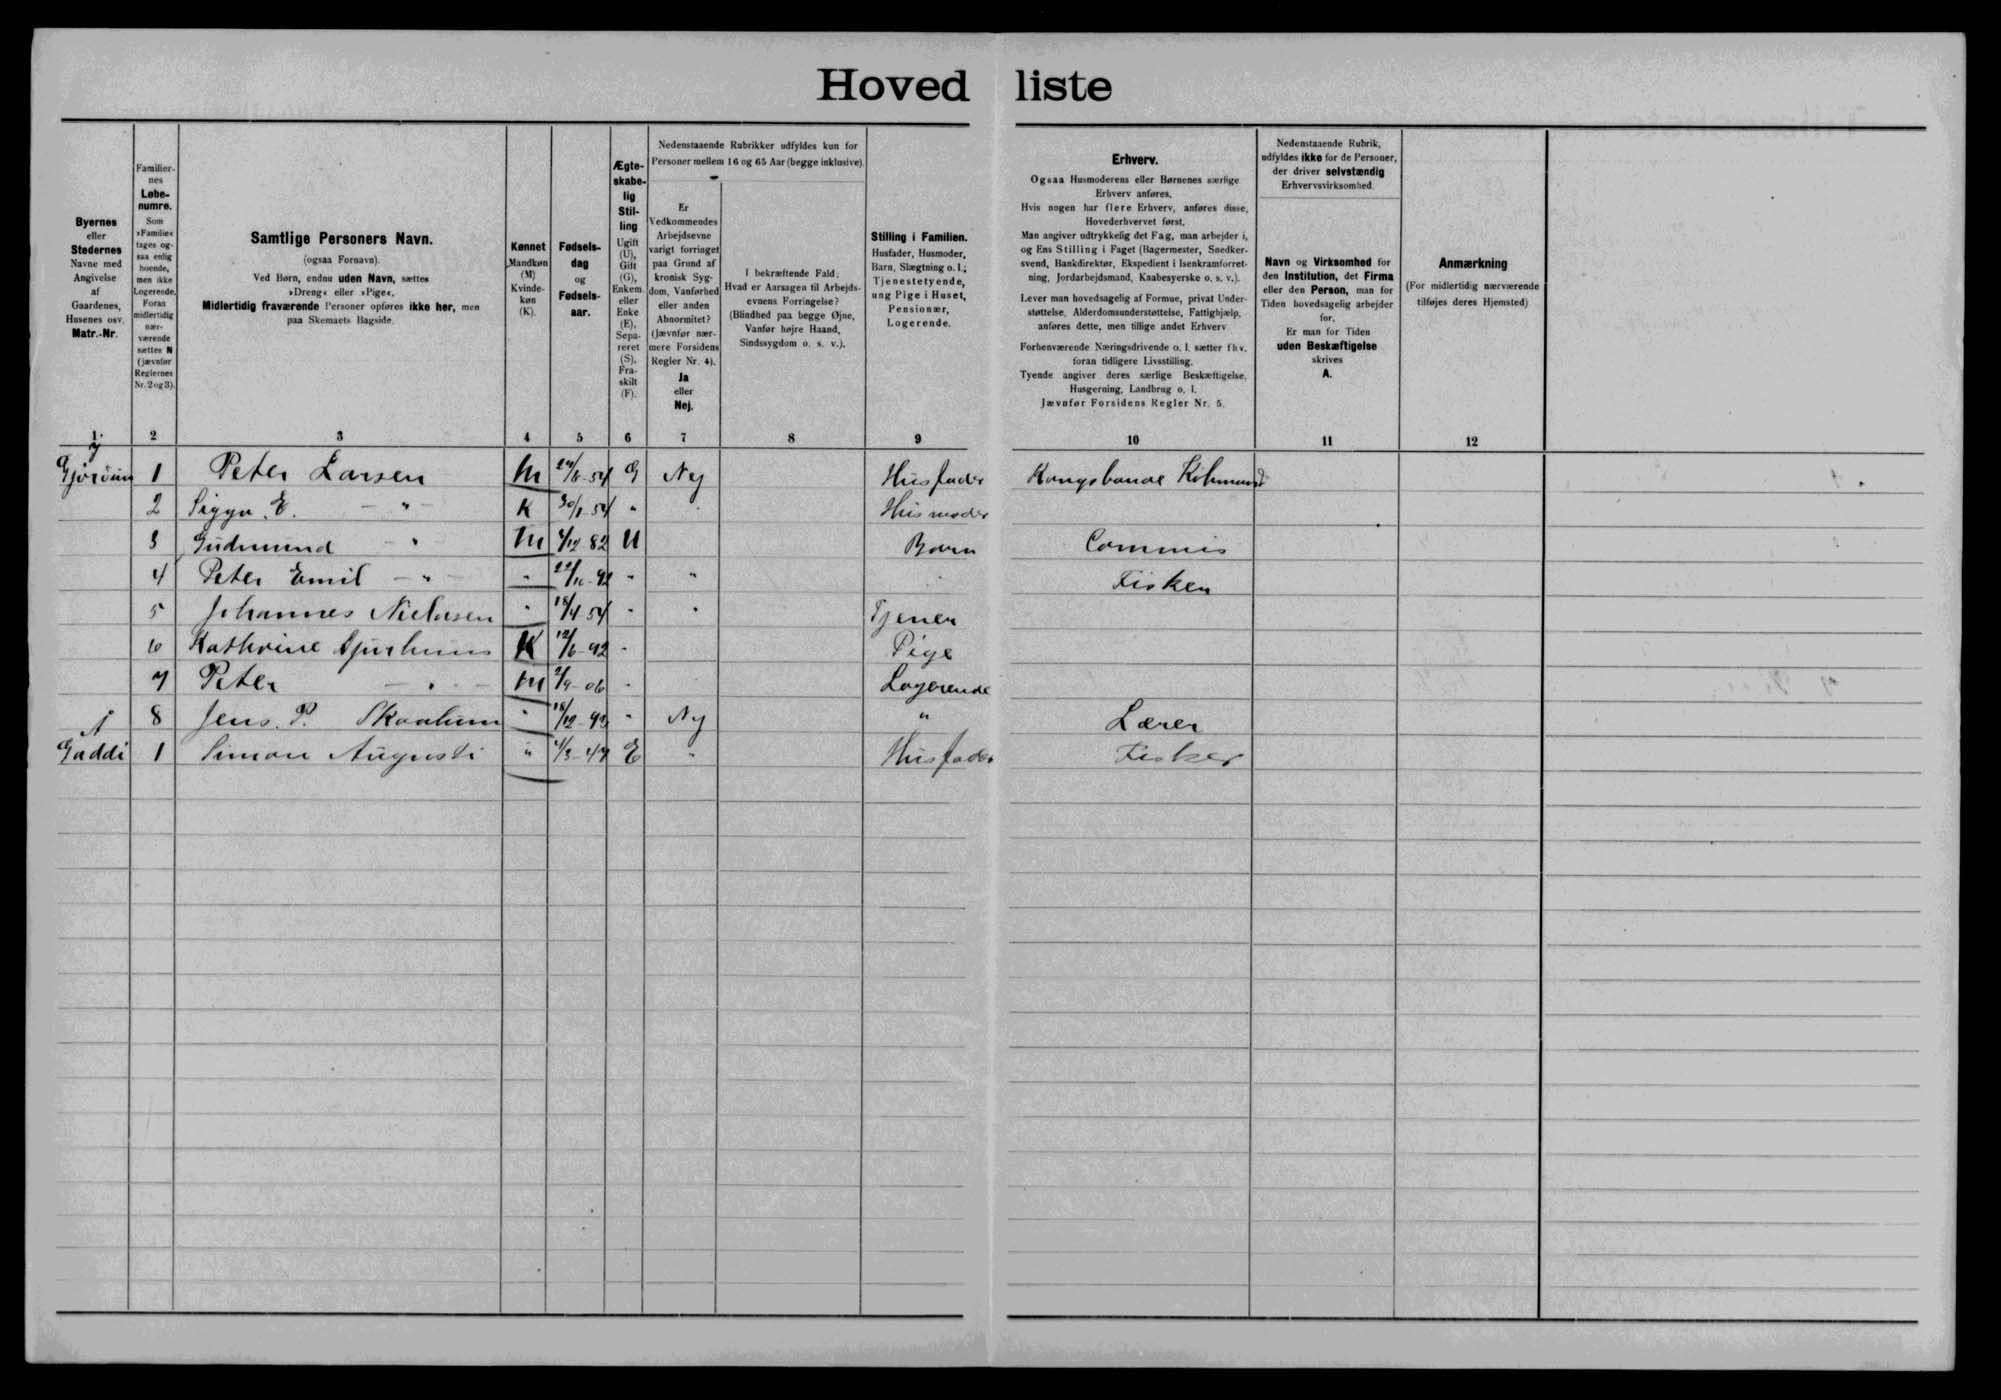 Hoved liste
Byernes
eller
Stedernes
Navne med
Angivelse
af
Gaardenes,
Husenes osv.
Matr.-Nr.
Familier-
nes
Løbe-
numre.
Som
»Familie«
tages og-
saa enlig
boende,
men ikke
Logerende.
Foran
midlertidig
nær-
værende
sættes N
(jævnfør
Reglernes
Nr. 2 og 3).
Samtlige Personers Navn.
(ogsaa Fornavn).
Ved Børn, endnu uden Navn, sættes
»Dreng« eller »Pige«.
Midlertidig fraværende Personer opføres ikke her, men
paa Skemaets Bagside.
Kønnet
Mandkøn
(M)
Kvinde-
køn
(K).
Fødsels-
dag
og
Fødsels-
aar.
Ægte-
skabe-
lig
Stil-
ling
Ugift
(U),
Gift
(G),
Enkem.
eller
Enke
(E),
Sepa-
reret
(S),
Fra-
skilt
(F).
Nedenstaaende Rubrikker udfyldes kun for
Personer mellem 16 og 65 Aar (begge inklusive).
Er
Vedkommendes
Arbejdsevne
varigt forringet
paa Grund af
kronisk Syg-
dom, Vanførhed
eller anden
Abnormitet?
(Jævnfør nær-
mere Forsidens
Regler Nr. 4).
Ja
eller
Nej.
I bekræftende Fald:
Hvad er Aarsagen til Arbejds-
evnens Forringelse?
(Blindhed paa begge Øjne,
Vanfør højre Haand,
Sindssygdom o. s. v.).
Stilling i Familien.
Husfader, Husmoder,
Barn, Slægtning o. l.;
Tjenestetyende,
ung Pige i Huset,
Pensionær,
Logerende.
Erhverv.
Ogsaa Husmoderens eller Børnenes særlige
Erhverv anføres.
Hvis nogen har flere Erhverv, anføres disse,
Hovederhvervet først.
Man angiver udtrykkelig det Fag, man arbejder i,
og Ens Stilling i Faget (Bagermester, Snedker-
svend, Bankdirektør, Ekspedient i Isenkramforret-
ning, Jordarbejdsmand, Kaabesyerske o. s. v.).
Lever man hovedsagelig af Formue, privat Under-
støttelse, Alderdomsunderstøttelse, Fattighjælp,
anføres dette, men tillige andet Erhverv
Forhenværende Næringsdrivende o. l. sætter fhv.
foran tidligere Livsstilling.
Tyende angiver deres særlige Beskæftigelse,
Husgerning, Landbrug o. l.
Jævnfør Forsidens Regler Nr. 5.
Nedenstaaende Rubrik,
udfyldes ikke for de Personer,
der driver selvstændig
Erhvervsvirksomhed.
Navn og Virksomhed for
den Institution, det Firma
eller den Person, man for
Tiden hovedsagelig arbejder
for.
Er man for Tiden
uden Beskæftigelse
skrives
A.
Anmærkning
(For midlertidig nærværende
tilføjes deres Hjemsted)
1. 2 3 4 5 6 7 8 9 10 11 12
1 Peter Larsen M G Nej Husfader
2 E. — " — K 30/1-54 " Husmoder
3 Gudmund — " M 4/12 82 U Barn Commis
4 Peter Emil — " — " " " Fisker
5 Johannes Nielasen " 18/4-54 " " Tjener
6 Kathrine K 12/6-92 " Pige
7 Peter — " — M 2/9-06 " Logerende
8 Jens. P. " 18/12-92 " Nej " Lærer
Gaddi 1 Simon Augusti " 4/3-47 E " Husfader Fisker